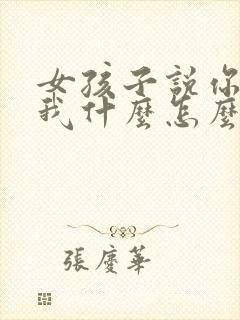 女孩子說你
我什麼怎麼
張慶華